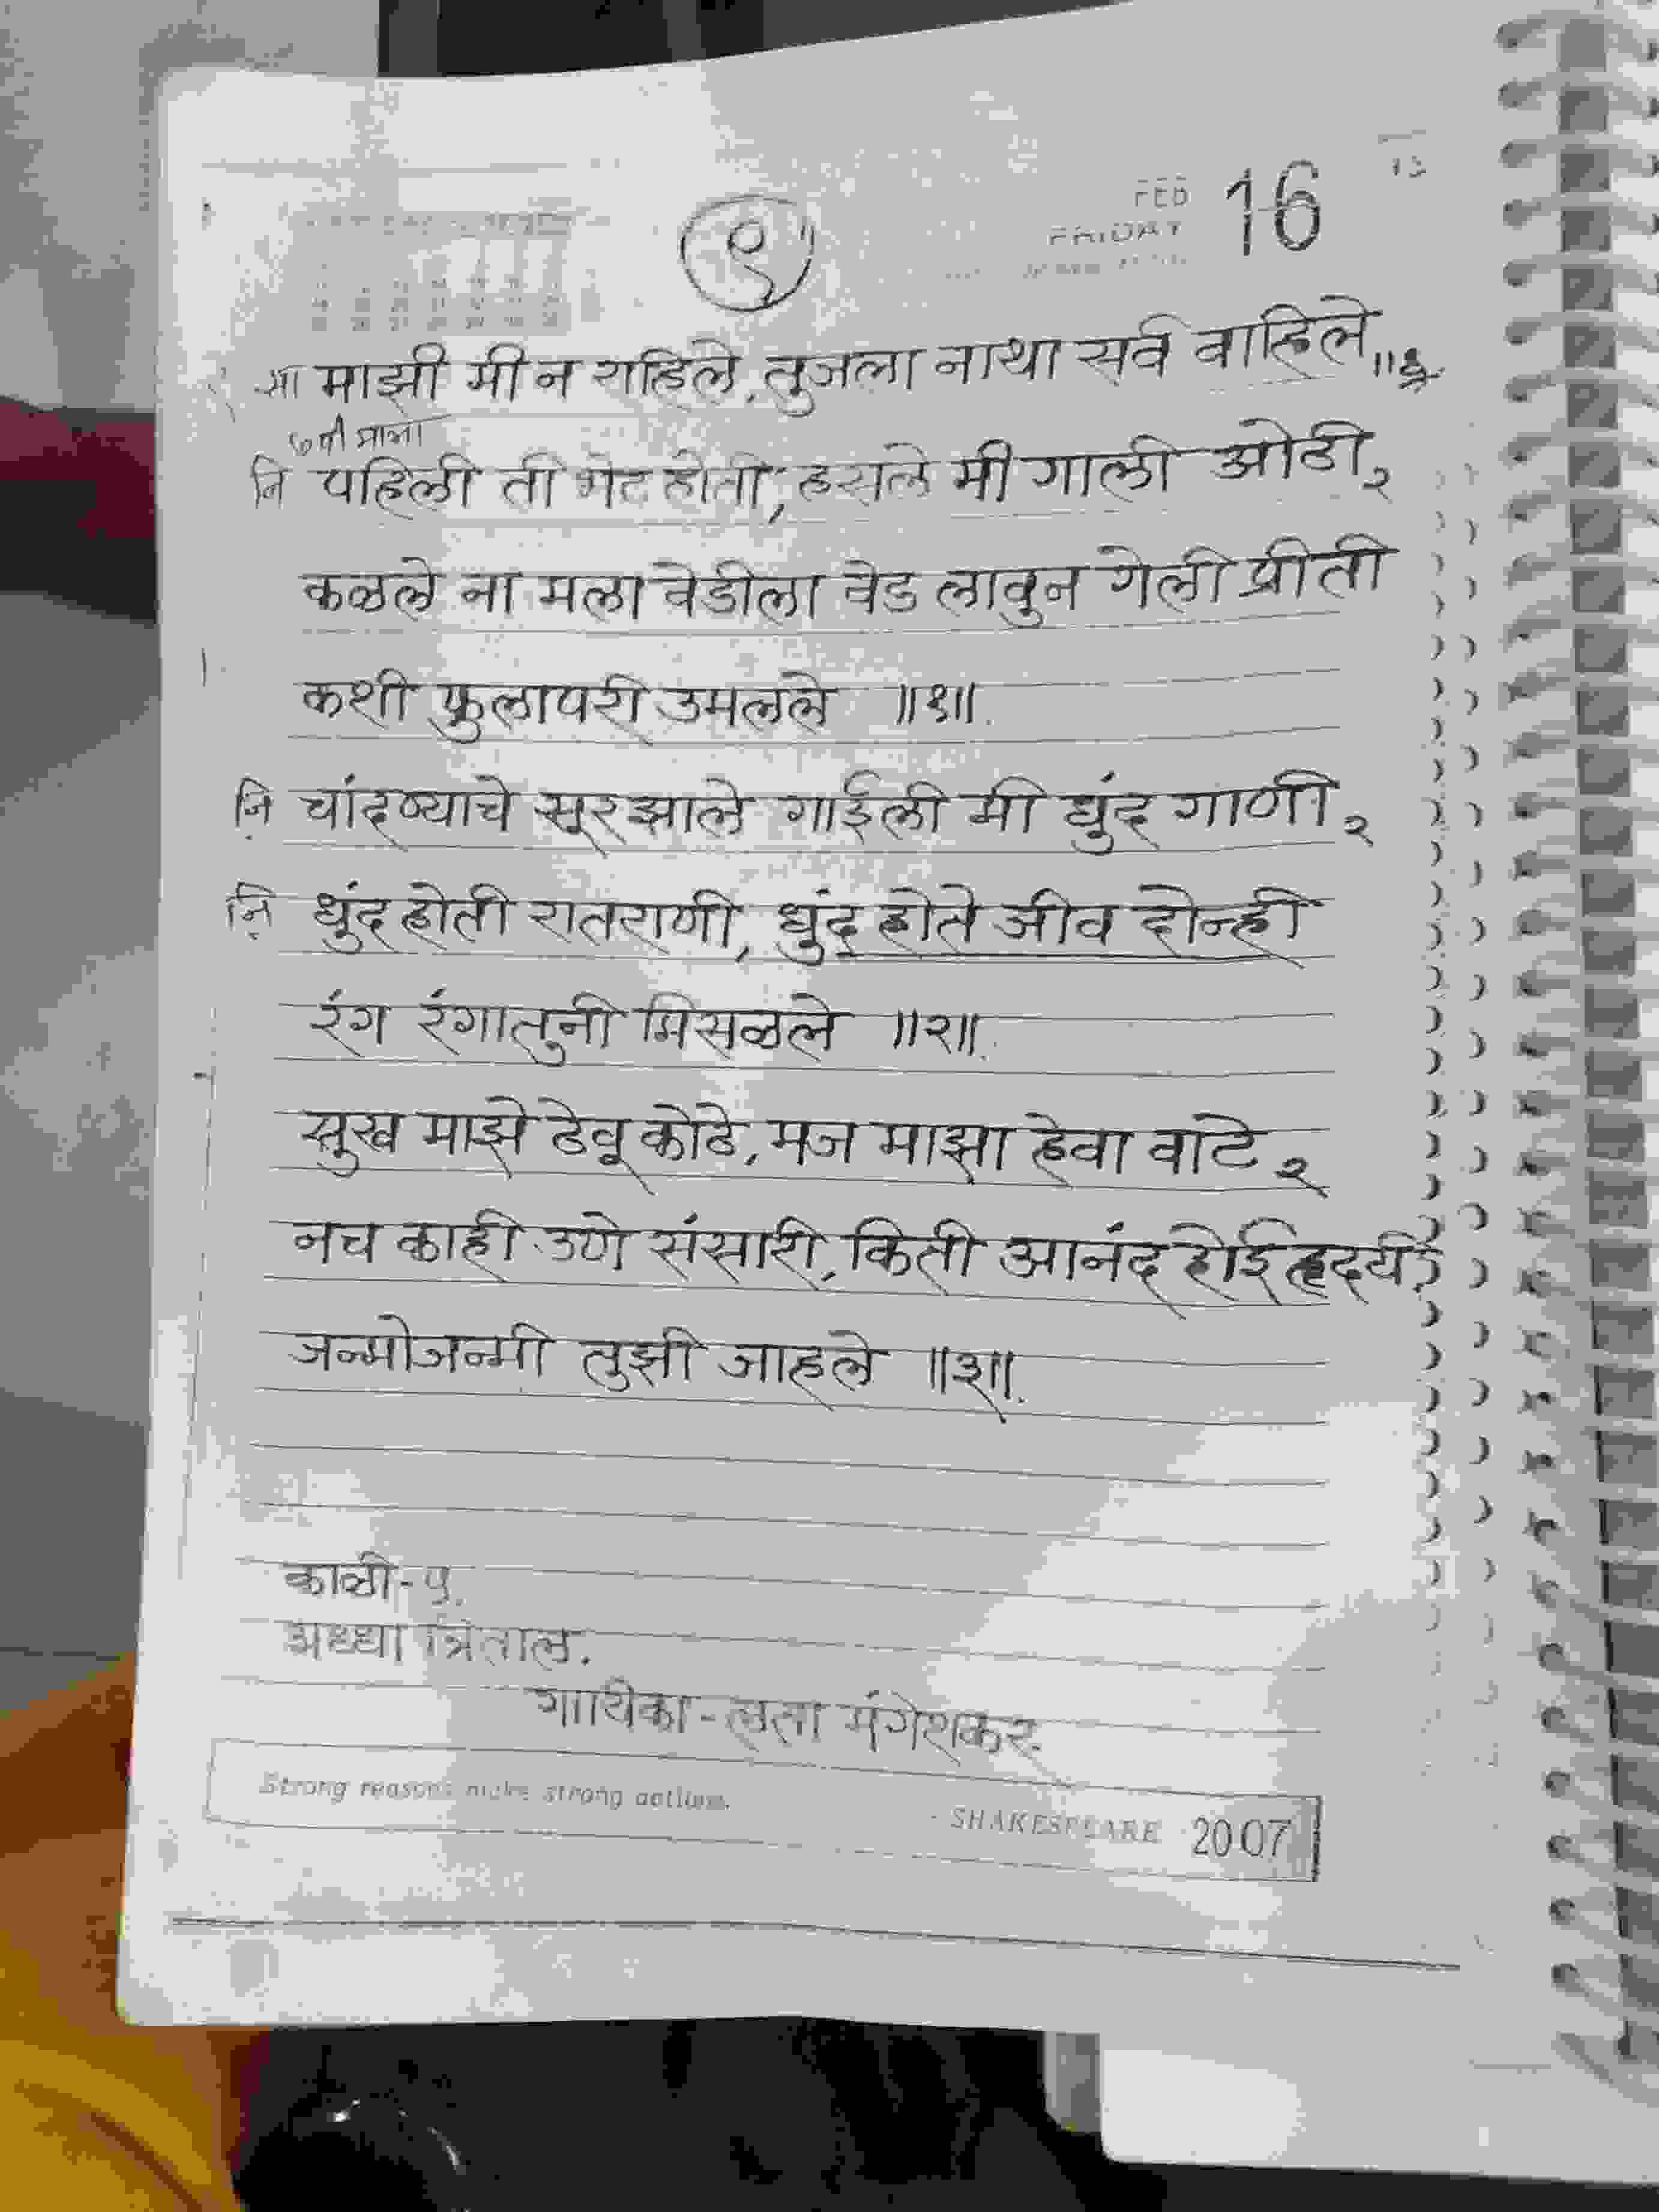 FEB 16
FRIDAY
१
सा माझी मी न राहिले. तुजला नाथा सर्व वाहिले ॥धृ
नि पहिली ती भेट होती, हसले मी गाली ओठी २
कळले ना मला वेडीला वेड लावुन गेली प्रीती
कशी फुलापरी उमलले ॥१॥.
नि़ चांदण्याचे सूर झाले गाईली मी धुंद गाणी २
नि़ धुंद होती रातराणी, धुंद होते जीव दोन्ही
रंग रंगातुनी मिसळले ॥२॥.
सुख माझे ठेवू कोठे, मज माझा हेवा वाटे २
नच काही उणे संसारी, किती आनंद होई हृदयी
जन्मोजन्मी तुझी जाहले ॥३॥.
काळी-५.
अध्धा त्रिताल.
गायिका - लता मंगेशकर.
Strong reasons make strong actions.
- SHAKESPEARE 2007